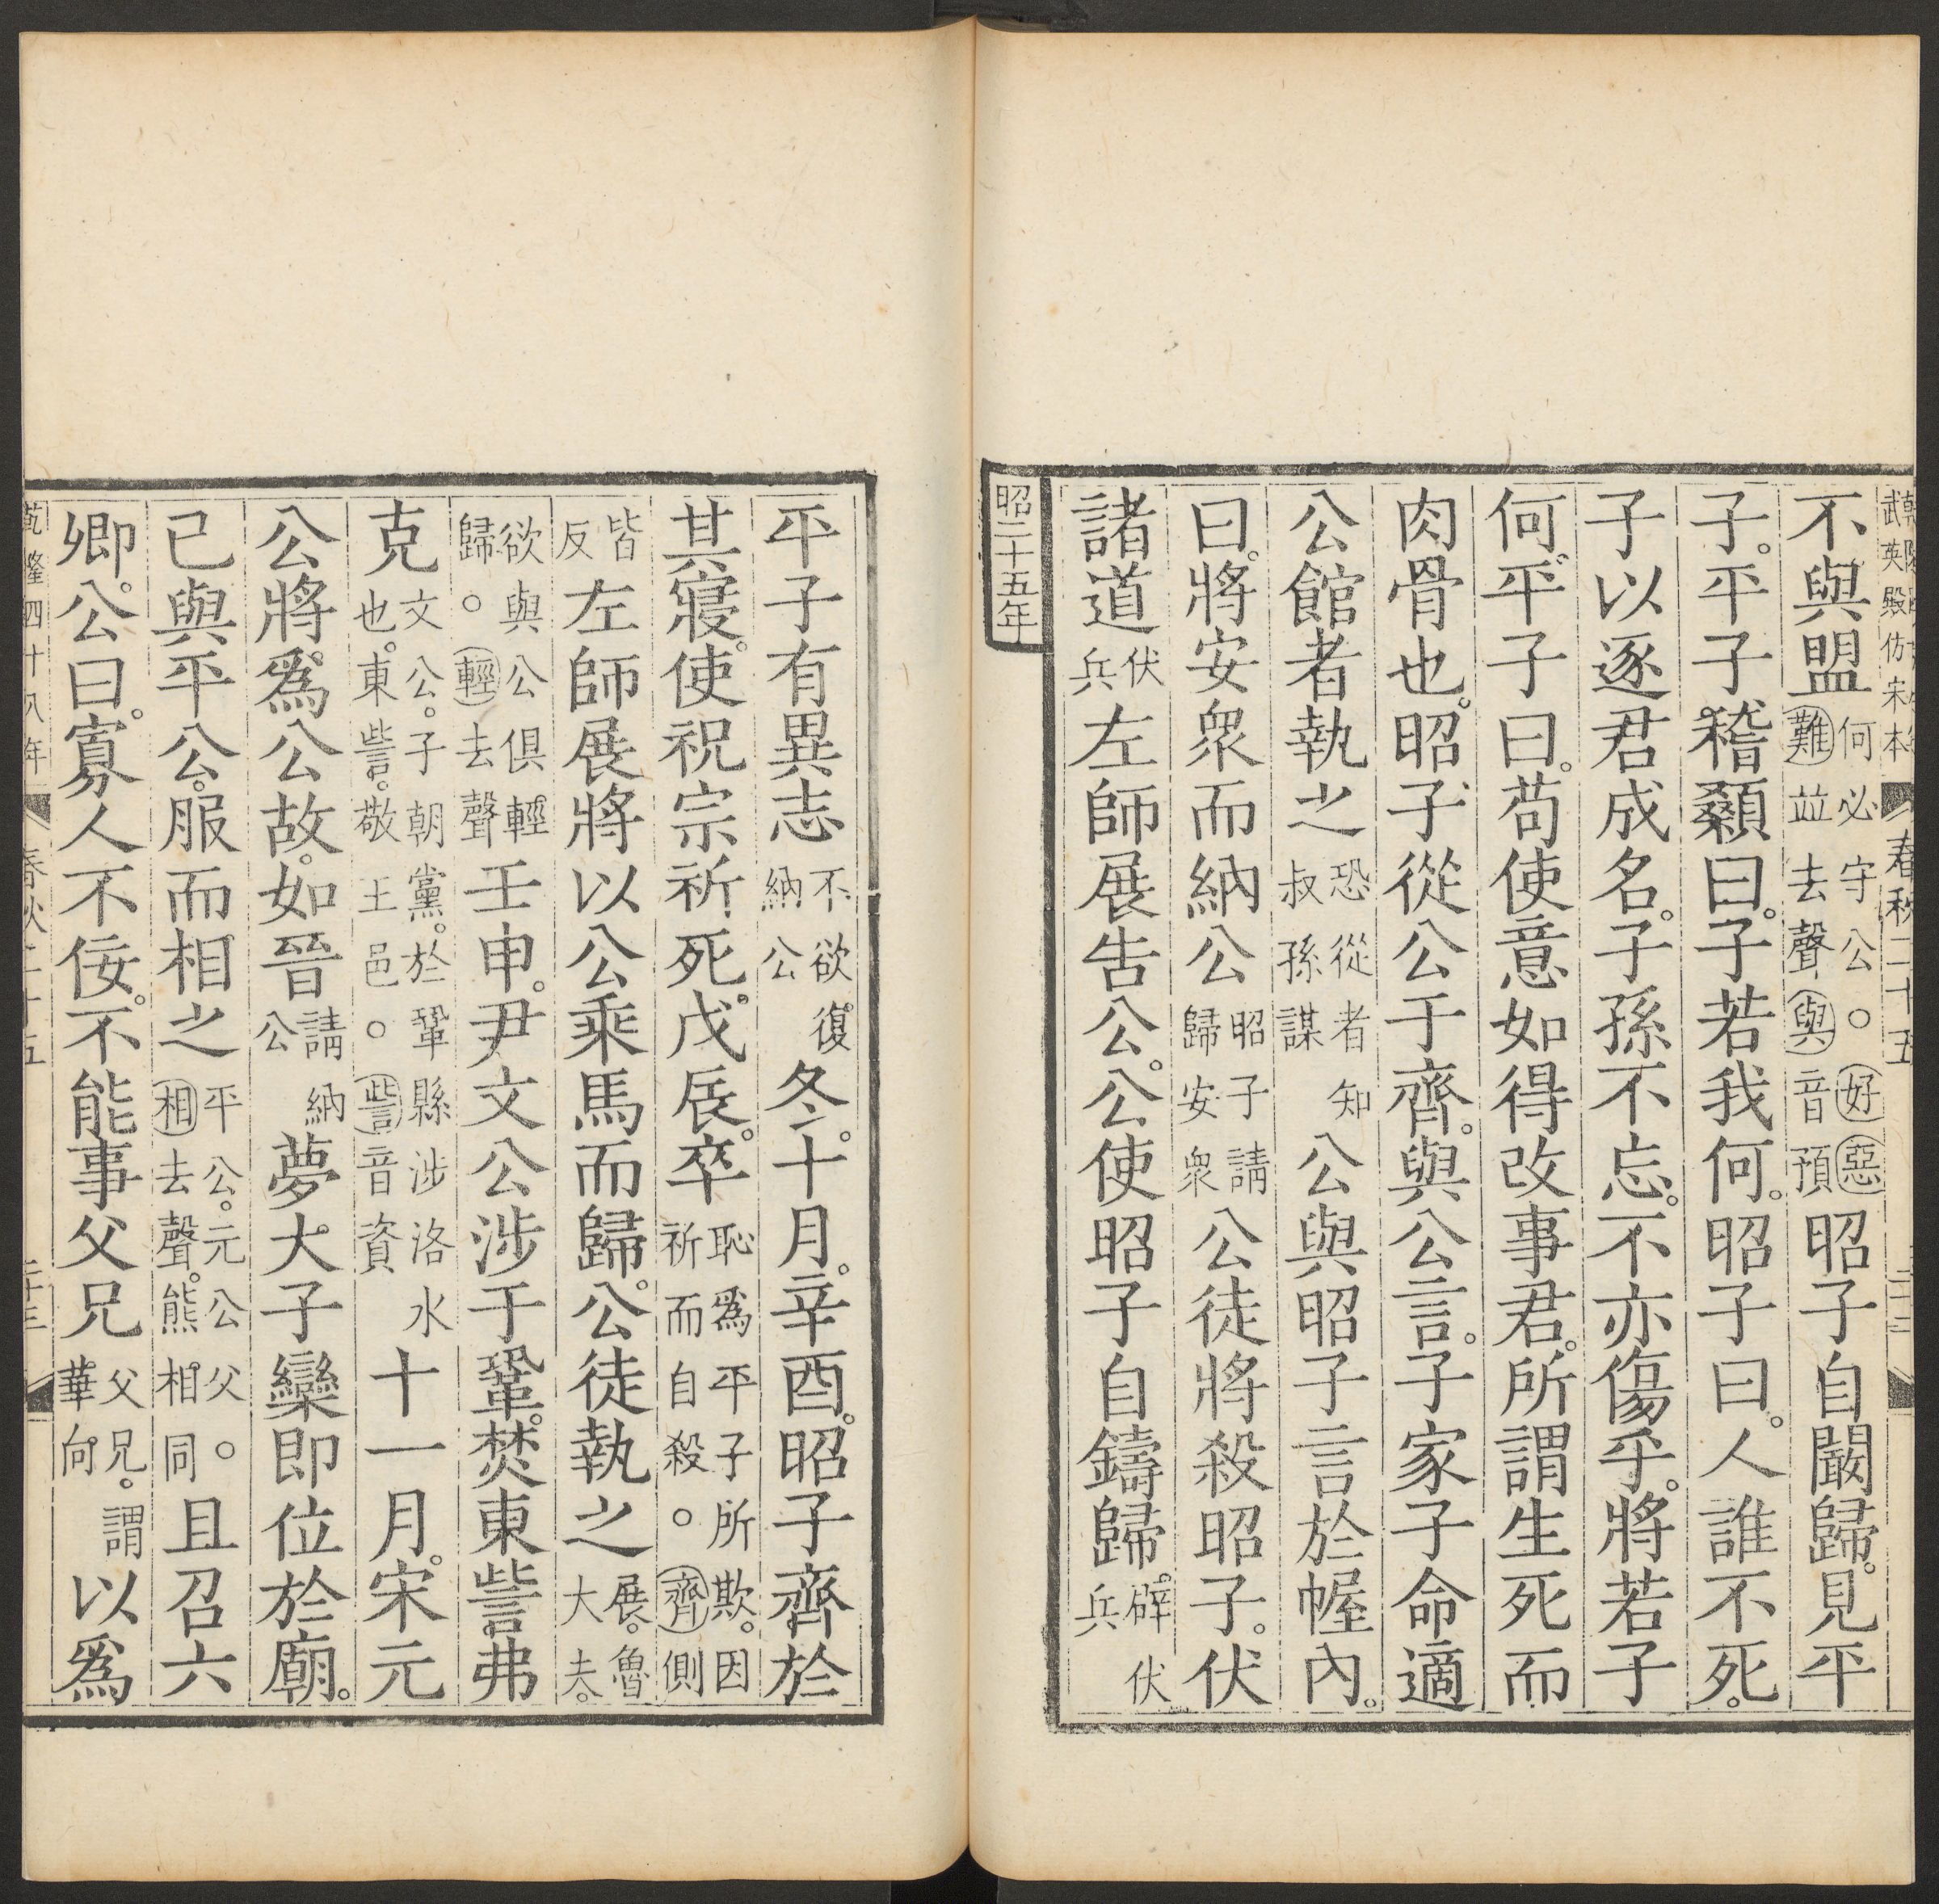 武英殿仿宋本 春秋二十五
不與盟何必守公○好惡難並去聲與音預昭子自闞歸見平
子平子稽顙曰子若我何昭子曰人誰不死
子以逐君成名子孫不忘不亦傷乎將若子
何平子曰苟使意如得改事君所謂生死而
肉骨也昭子從公于齊與公言子家子命適
公館者執之恐從者知叔孫謀公與昭子言於幄內
曰將安眾而納公昭子請歸安眾公徒將殺昭子伏
諸道伏兵左師展告公公使昭子自鑄歸辟伏兵
昭二十五年
平子有異志不欲復納公冬十月辛酉昭子齊於
其寢使祝宗祈死戊辰卒恥爲平子所欺因祈而自殺○齊側
皆反左師展將以公乘馬而歸公徒執之展魯大夫
欲與公俱輕歸○輕去聲壬申尹文公涉于鞏焚東訾弗
克文公子朝黨於鞏縣涉洛水也東訾敬王邑○訾音資十一月宋元
公將爲公故如晉請納公夢大子欒即位於廟
已與平公服而相之平公元公父○相去聲熊相同且召六
卿公曰寡人不佞不能事父兄父兄謂華向以爲
乾隆四十八年 春秋二十五 二十三